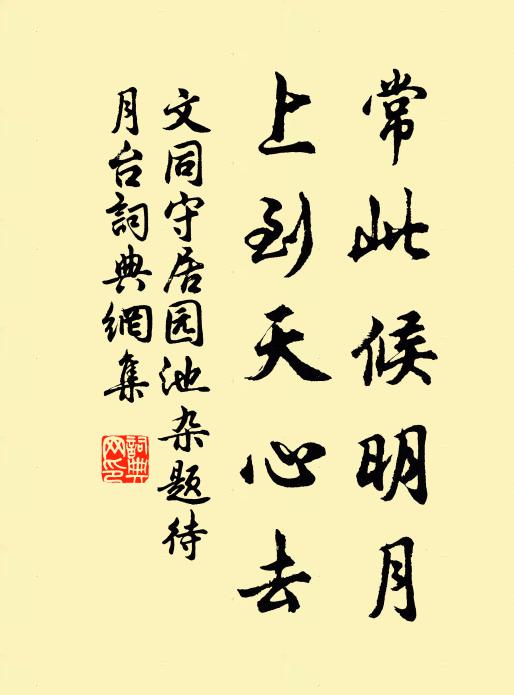 常此候明月
上到天心去
文同守居园池杂题待
月台詞典網集
詞典
网印